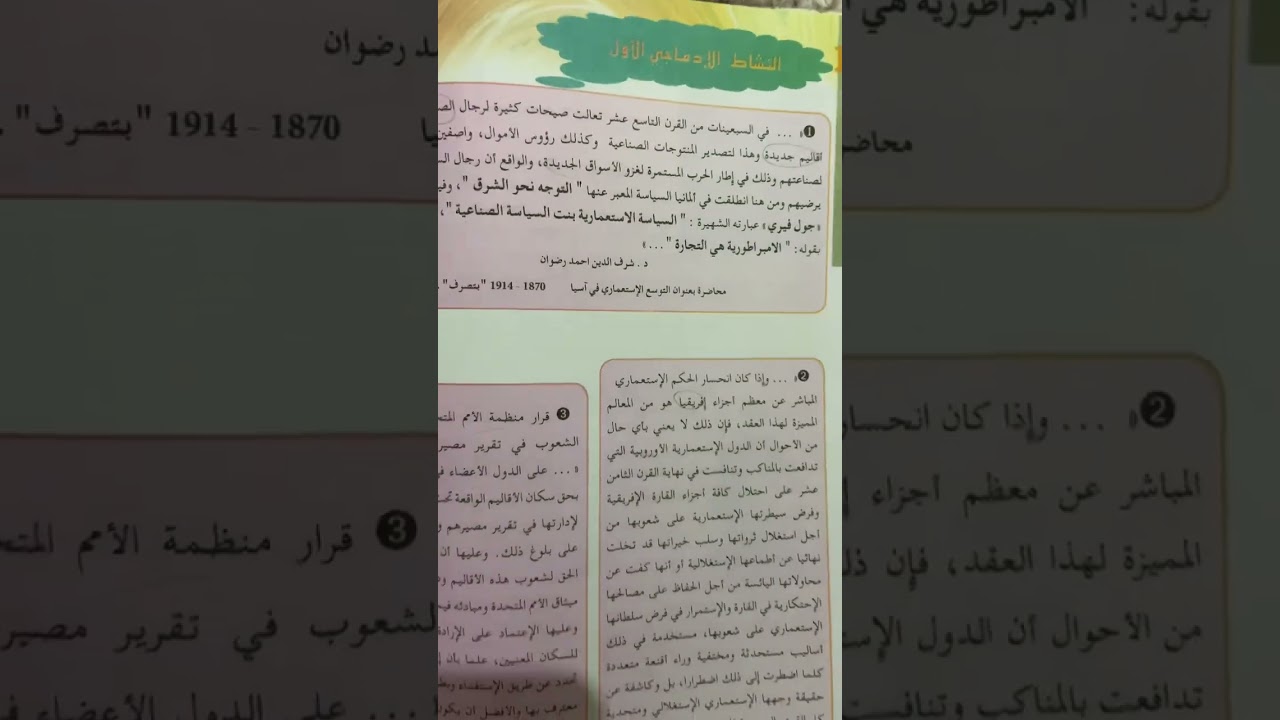 النشاط الإدماجي الأول
❶« ... في السبعينات من القرن التاسع عشر تعالت صيحات كثيرة لرجال
أقاليم جديدة وهذا لتصدير المنتوجات الصناعية وكذلك رؤوس الأموال، واصفين
لصناعتهم وذلك في إطار الحرب المستمرة لغزو الأسواق الجديدة، والواقع أن رجال
يرضيهم ومن هنا انطلقت في ألمانيا السياسة المعبر عنها " التوجه نحو الشرق "،
«جول فيري» عبارته الشهيرة : " السياسة الاستعمارية بنت السياسة الصناعية "،
بقوله: " الامبراطورية هي التجارة "...»
د . شرف الدين احمد رضوان
محاضرة بعنوان التوسع الإستعماري في آسيا 1870 - 1914 "بتصرف" .
❷« ... وإذا كان انحسار الحكم الإستعماري
المباشر عن معظم أجزاء إفريقيا هو من المعالم
المميزة لهذا العقد، فإن ذلك لا يعني بأي حال
من الأحوال أن الدول الإستعمارية الأوروبية التي
تدافعت بالمناكب وتنافست في نهاية القرن الثامن
عشر على احتلال كافة أجزاء القارة الإفريقية
وفرض سيطرتها الإستعمارية على شعوبها من
أجل استغلال ثرواتها وسلب خيراتها قد تخلت
نهائيا عن أطماعها الإستغلالية أو أنها كفت عن
محاولاتها اليائسة من أجل الحفاظ على مصالحها
الإحتكارية في القارة والإستمرار في فرض سلطانها
الإستعماري على شعوبها، مستخدمة في ذلك
أساليب مستحدثة ومختفية وراء أقنعة متعددة
كلما اضطرت إلى ذلك اضطرارا، بل وكاشفة عن
حقيقة وجهها الإستعماري الإستغلالي ومتحدية
❸ قرار منظمة الأمم
الشعوب في تقرير
« ... على الدول الأعضاء
بحق سكان الأقاليم الواقعة
لإدارتها في تقرير مصيرهم
على بلوغ ذلك. وعليها أن
الحق لشعوب هذه الأقاليم
ميثاق الأمم المتحدة ومبادئه
وعليها الإعتماد على
للسكان المعنيين، علما بأن
عن طريق الإستفتاء
معترف بها والأفضل أن